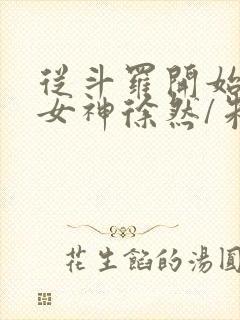 從斗羅開始
女神徐然/朱
花生餡的湯圓